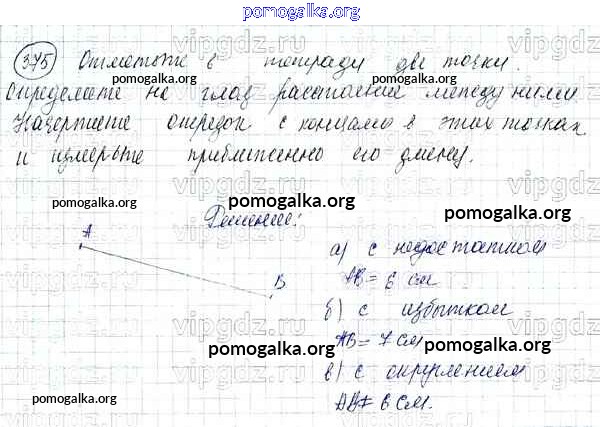 pomogalka.org
375 Отметьте в тетради две точки.
pomogalka.org pomogalka.org
Определите на глаз расстояние между ними
Начертите отрезок с концами в этих точках
pomogalka.org pomogalka.org
и измерьте приближенно его длину.
pomogalka.org pomogalka.org pomogalka.org
Решение:
A
B
а) с недостатком
AB = 6 см
pomogalka.org
б) с избытком
AB = 7 см
pomogalka.org pomogalka.org
в) с округлением
pomogalka.org pomogalka.org
AB ≠ 6 см.
vipgdz.ru